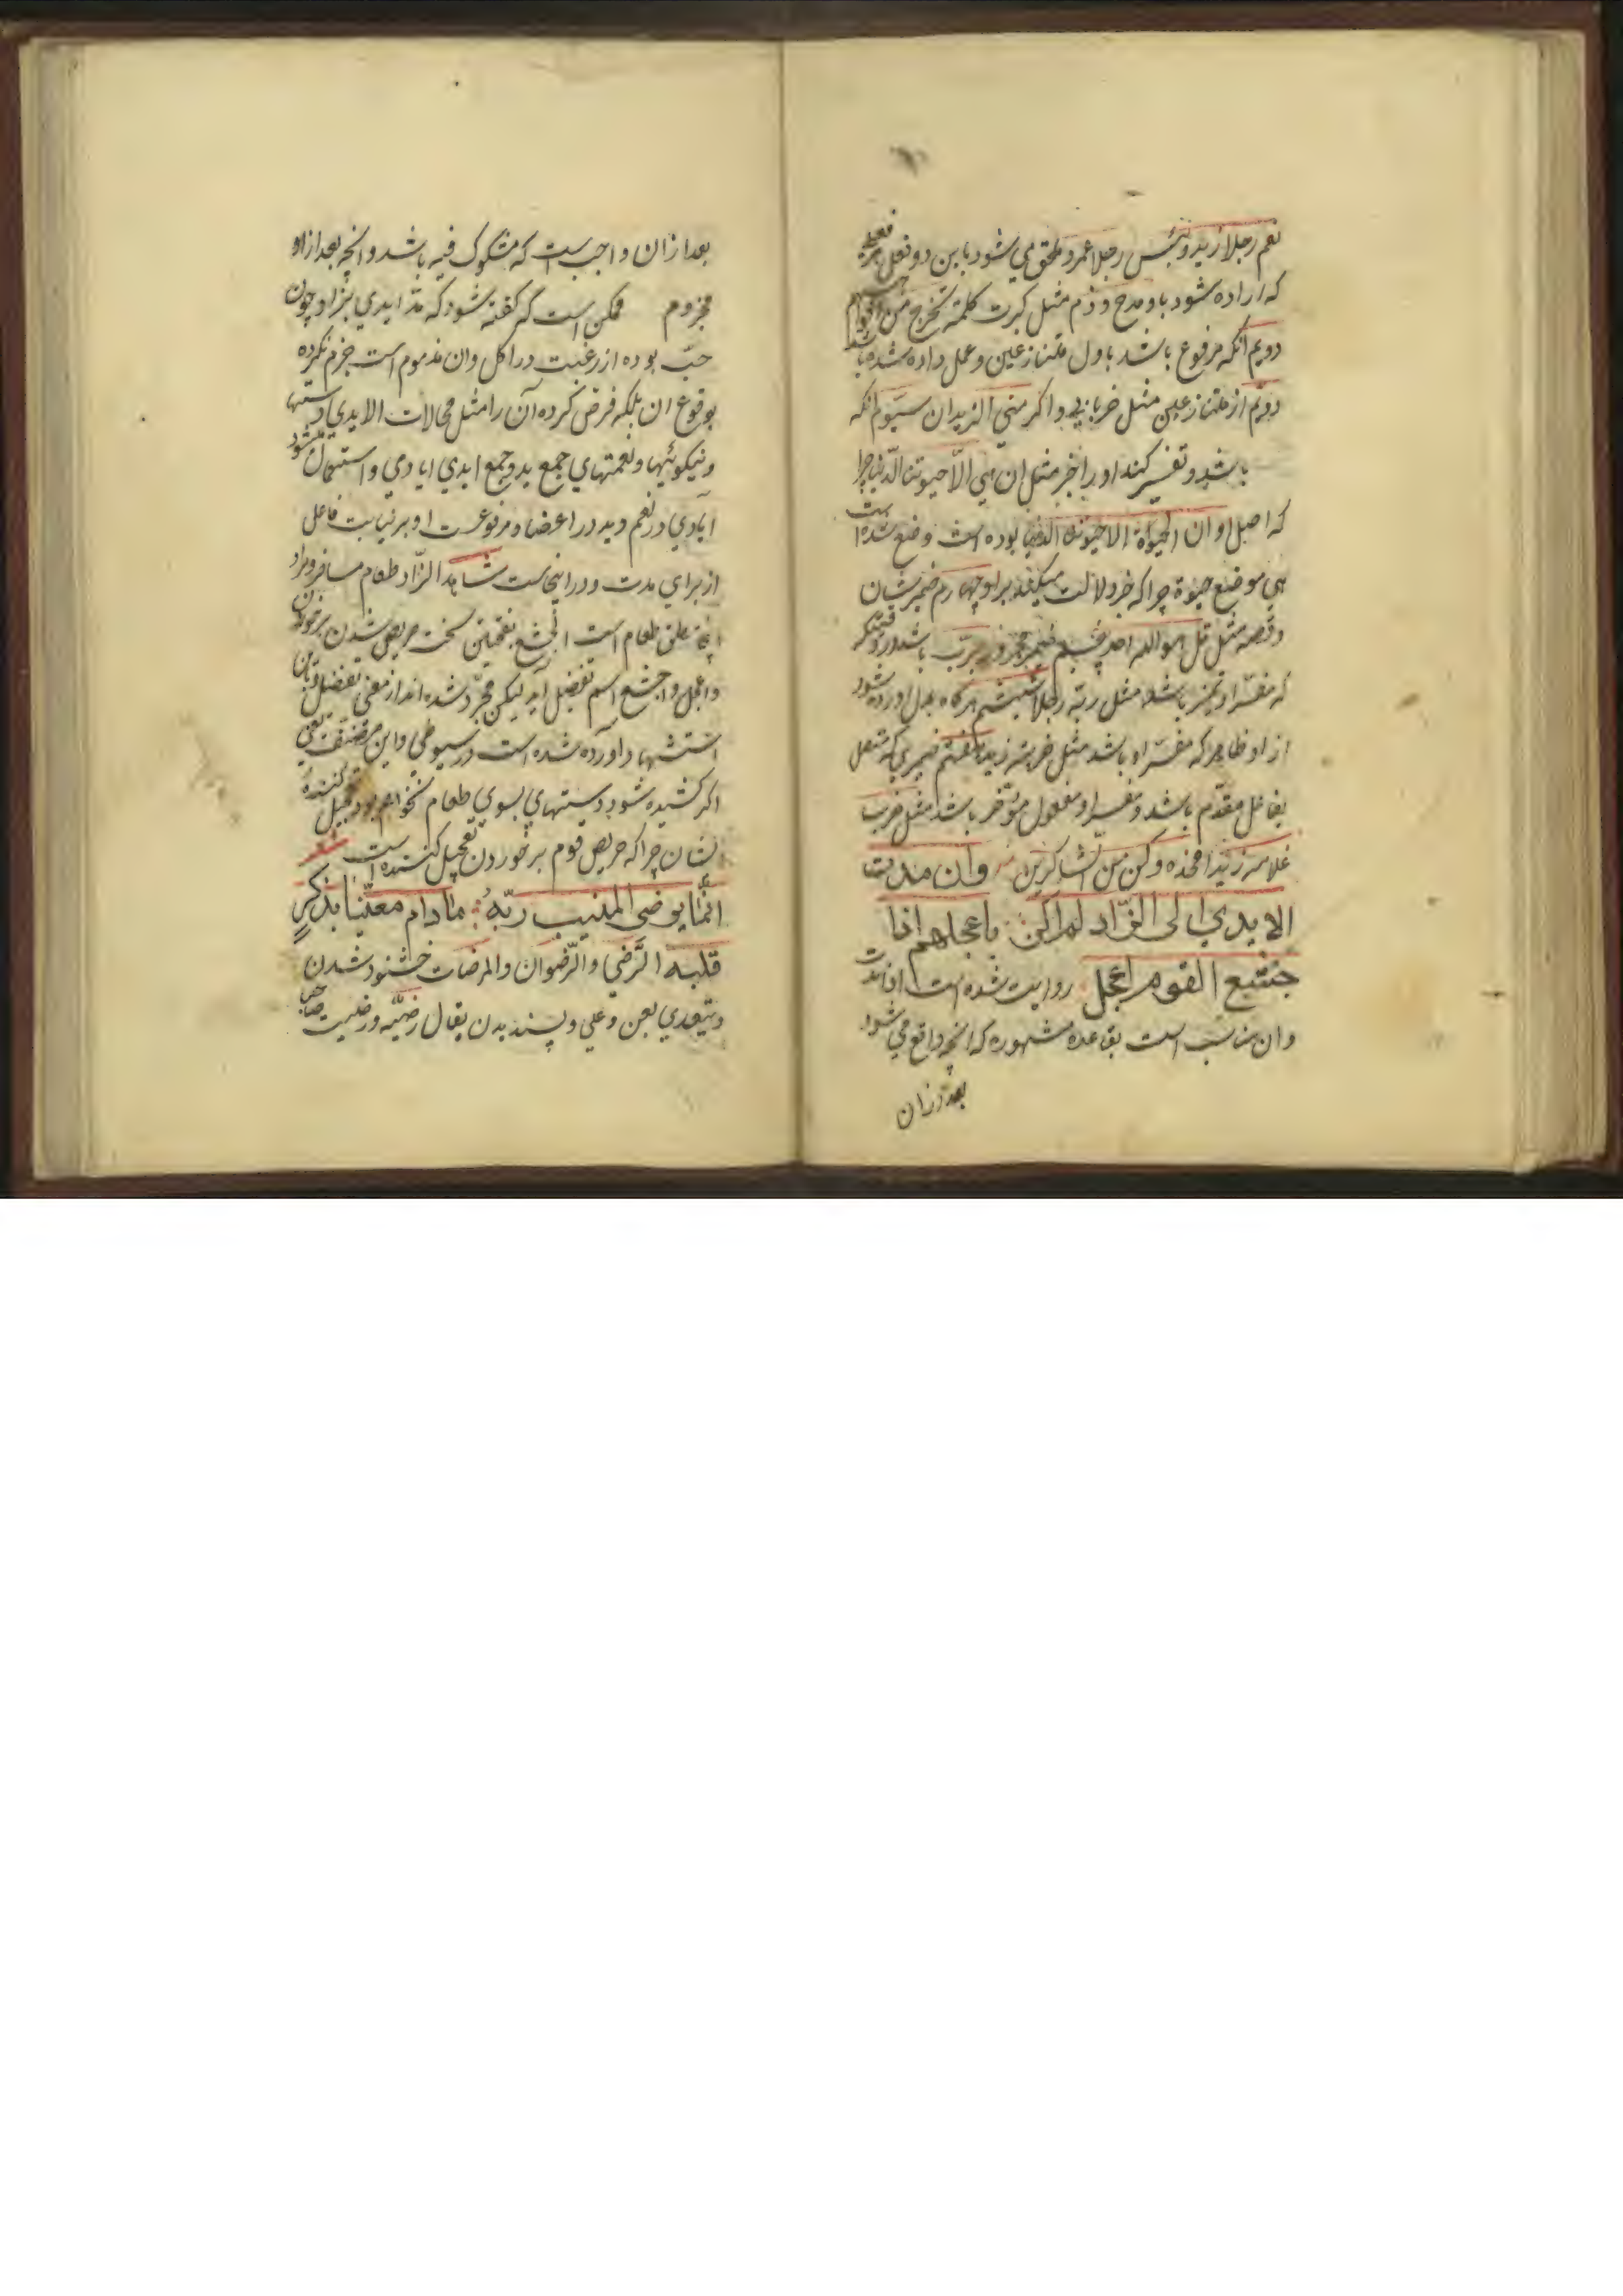 نعم رجلا زید و بئس رجلا عمرو و ملحق می شود باین دو فعل
که اراده شود باو مدح و ذم مثل کبرت کلمة تخرج من افواههم
دویم انکه مرفوع باشد باول متنازعین و عمل داده شده باشد
دویم از متنازعین مثل ضربانی و اکرمنی الزیدان سیوم انکه
باشد و تفسیر کند او را خبر مثل ان هی الّا حیوتنا الدّنیا چرا
که اصل او ان الحیوة الا حیوتنا الدنیا بوده است وضع شده است
هی موضع حیوة چرا که خبر دلالت میکند براو چهارم ضمیر شان
و قصه مثل قل هو الله احد پنجم ضمیر مجرور بربّ باشد
که مفسّر او تمیز باشد مثل ربّه رجلا ششم هرگاه بدل اورده شود
از او ظاهر که مفسّر او باشد مثل ضربته زیدا هفتم ضمیری که متصل
بفاعل مقدّم باشد و مفسر او مفعول مؤخر باشد مثل ضرب
غلامه زیدا فخذه و کن من الشاکرین وان مدت
الایدی الی الزّاد لم اکن باعجلهم اذا
جشع القوم اعجل روایت شده است اذا مدت
وان مناسب است بقاعده مشهوره که انچه واقع می شود
بعد ازان
بعد ازان واجب است که مشکوک فیه باشد وانچه بعد از او
مجزوم ممکن است که کفته شود که مدّ ایدی بزاد چون
حبّ بوده از رغبت در اکل وان مذموم است جزم نکرده
بوقوع ان بلکه فرض کرده آن را مثل محالات الایدی دستها
و نیکوئیها و نعمتهای جمع ید و جمع ایدی ایادی و استعمال میشود
ایادی در نعم و ید در اعضا و مرفوعست او بر نیابت فاعل
از برای مدت و در اینجاست شاهد الزّاد طعام مسافر و مراد
اینجا مطلق طعام است الجشع بفتحتین سخت حریص شدن برخوردن
و اعجل و اجشع اسم تفضیل اند لیکن مجرّد شده اند از معنی تفضیل
استشهاد اورده شده است در سیوطی و این مصنّف یعنی
اکر کشیده شود دستهای بسوی طعام نخواهم بود تعجیل کننده
ایشان چرا که حریص قوم بر خوردن تعجیل کننده است شعر
انّما یرضی المنیب ربّه ما دام معنیّا بذکرٍ
قلبه الرّضی والرّضوان والمرضات خشنود شدن
و یتعدی بعن وعلی و پسندیدن یقال رضیّه و رضیت